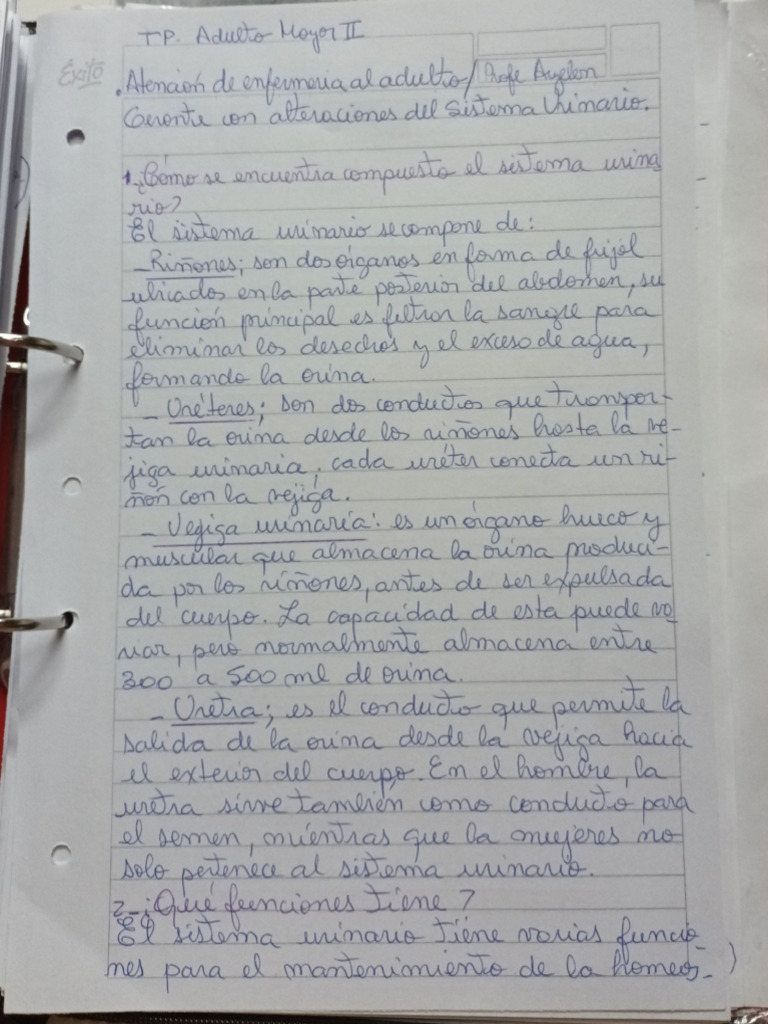 TP. Adulto Mayor II
Éxito
. Atención de enfermeria al adulto / Profe Ayelen
Geronte con alteraciones del Sistema Urinario.
1. ¿Cómo se encuentra compuesto el sistema urina
rio?
El sistema urinario se compone de:
- Riñones; son dos órganos en forma de frijol
ubicados en la parte posterior del abdomen, su
función principal es filtrar la sangre para
eliminar los desechos y el exceso de agua,
formando la orina.
- Uréteres; son dos conductos que transpor-
tan la orina desde los riñones hasta la ve-
jiga urinaria, cada uréter conecta un ri-
ñón con la vejiga.
- Vejiga urinaria: es un órgano hueco y
muscular que almacena la orina produci-
da por los riñones, antes de ser expulsada
del cuerpo. La capacidad de esta puede va
riar, pero normalmente almacena entre
300 a 500 ml de orina.
- Uretra; es el conducto que permite la
salida de la orina desde la vejiga hacia
el exterior del cuerpo. En el hombre, la
uretra sirve también como conducto para
el semen, mientras que la mujeres no
solo pertenece al sistema urinario.
2- ¿Qué funciones tiene?
El sistema urinario tiene varias funcio
nes para el mantenimiento de la homeos-